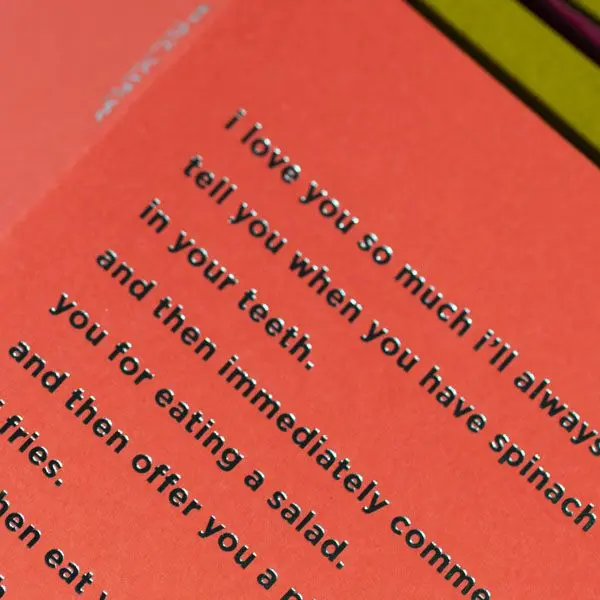 i love you so much i'll always
tell you when you have spinach
in your teeth.
and then immediately comme
you for eating a salad.
and then offer you a
fries.
hen eat